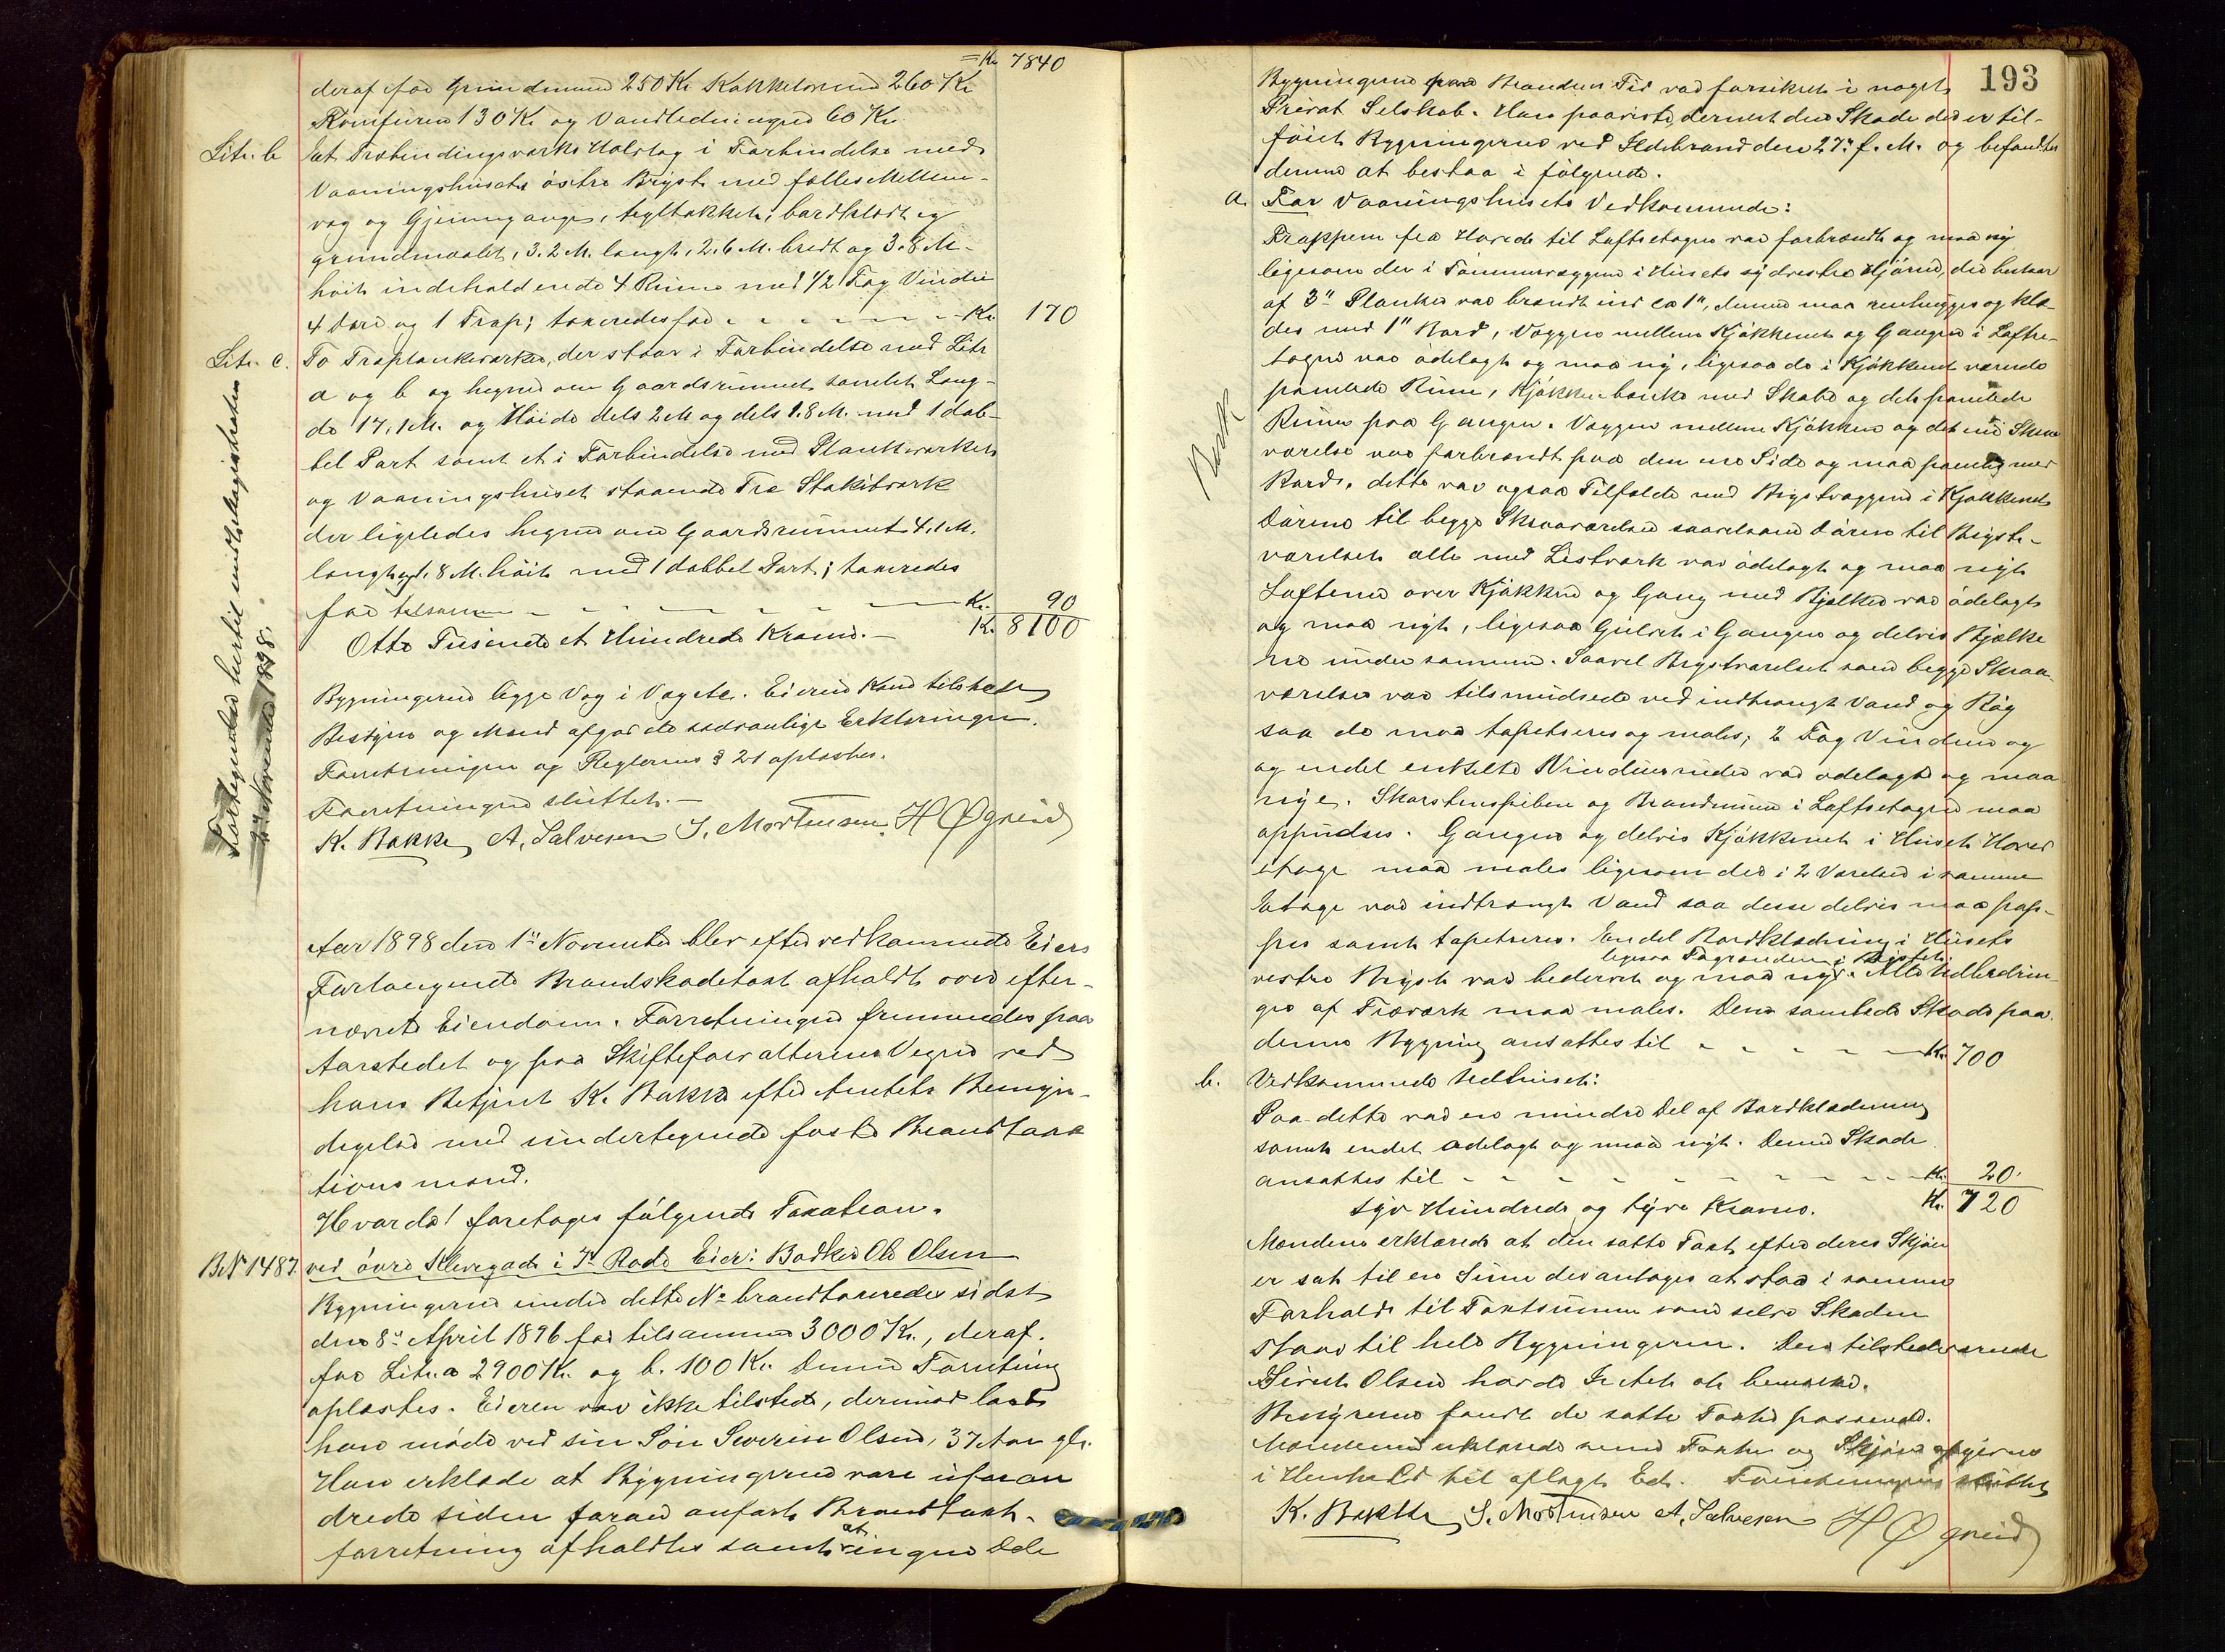 = Kr. 7840
deraf for Grundmuren 250 Kr Kakkelovnene 260 Kr
Komfuren 130 Kr og Vandledningen 60 Kr.
Litr. b Et Træbindingsværks Halvtag i Forbindelse med
Vaaningshusets östre Bryst med fælles Mellem-
væg og Gjennemgange, tegltækket, bordklædt og
grundmuret, 3.2 M. langt, 2.6 M. bredt og 3.8 M.
höit indeholdende 4 Rum med 1/2 Fag Vindu
4 Döre og 1 Trap; taxeredes for - - - - - Kr. 170
Litr. c. To Træplankeværker, der staar i Forbindelse med Litr
a og b og hegner om Gaardsrummet samlet Læng-
de 17.1 M. og Höide dels 2 M og dels 1.8 M. med 1 dob-
bel Port samt et i Forbindelse med Plankeværket
og Vaaningshuset staaende Træ Stakitværk
der ligeledes hegner om Gaardsrummet 4.1 M.
langt og 1.8 M. höit med 1 dobbel Port; taxeredes
for tilsammen - - - - - Kr. 90
Otte Tusende et Hundrede Kroner. - Kr. 8100
Fortegnelse hertil indts. Magistraten
2den November 1898.
Bygningerne ligge Væg i Væg etc. Eieren Kand tilstede
Bestyrer og Mænd afgav de sædvanlige Erklæringer.
Forretningen og Reglernes § 21 oplæstes.
Forretningen sluttet. -
K. Bakke, A. Salvesen S. Mortensen. H Øgreid
Aar 1898 den 1ste November blev efter vedkommende Eiers
Forlangende Brandskadetaxt afholdt over efter-
nævnte Eiendom. Forretningen fremmedes paa
Aastedet og paa Skifteforvalterens Vegne ved
hans Betjent K. Bakke efter Amtets Bemyn-
digelse med undertegnede faste Brandtaxa
tionsmænd.
Hvorda! foretoges fölgende Taxation.
B.N 1487. ved övre Klevegade i 7de Rode Eier: Bödker Ole Olsen
Bygningerne under dette No brandtaxeredes sidst
den 8de April 1896 for tilsammen 3000 Kr., deraf
for Litr. a 2900 Kr. og b. 100 Kr. Denne Forretning
oplæstes. Eieren var ikke tilstede, derimod lod
han möde ved sin Sön Severin Olsen, 37 Aar gl.
Han erklæde at Bygningerne vare uforan
drede siden foran anförte Brandtaxt-
forretning afholdtes samt at ingen Dele
193
Bygningerne paa Brandens Tid var forsikret i noget
Privat Selskab. Han paaviste dernest den Skade der er til-
föiet Bygningerne ved Ildebrand den 27de f. M. og befandtes
denne at bestaa i fölgende.
a. For Vaaningshusets Vedkommende:
Trappen fra Hoved til Loftsetagen var forbrændt og maa ny
ligesom der i Tömmervæggene i Husets sydvestre Hjörne, der bestaar
af 3" Planker var brændt ind ca 1", denne maa renhugges og klæ-
des med 1" Bord, Væggen mellem Kjökkenet og Gangen i Loftse-
tagen var ödelagt og maa ny, ligesaa de i Kjökkenet værende
panelede Rum, Kjökkenbænke med Skabe og det panelede
Rum paa Gangen. Væggen mellem Kjökken og det ene Skraa
værelse var forbrændt paa den ene Side og maa paanly med
Bord, dette var ogsaa Tilfælde med Brystvæggene i Kjökkenet
Dörene til begge Skraaværelser saavelsom Dören til Bryst-
værelset alle med Listværk var ödelagt og maa nyt
Loftene over Kjökken og Gang med Bjælker var ödelagt
og maa nyt, ligesaa Gulvet i Gangen og delvis Bjælke
ne under samme. Saavel Brystværelset som begge Skraa-
værelser var tilsmudsede ved indtrængt Vand og Røg
saa de maa tapetseres og males; 2 Fag Vinduer og
og endel enkelte Vinduesruder var ödelagt og maa
nye. Skorstenspiben og Brandmuren i Loftsetagen maa
oppudses. Gangen og delvis Kjökkenet i Huset Hoved
etage maa males ligesom der i 2 Værelser i samme
Etage var indtrængt Vand saa desse delvis maa pap-
pes samt tapetseres. Endel Bordklædning i Husets
ligesaa Tagrenden i Brystet
vestre Bryst var bedervet og maa nye. Alle Udbedrin-
ger af Træværk maa males. Den samlede Skade paa
denne Bygning ansættes til - - - - - Kr. 700
Bakk
b. Vedkommende Udhuset:
Paa dette var en mindre Del af Bordklædning
samt endel ödelagt og maa nyt. Denne Skade
ansættes til - - - - - - - Kr. 20.
Syv Hundrede og tyve Kroner. Kr. 720
Mændene erklærede at den satte Taxt efter deres Skjön
er sat til en Sum der antages at staa i samme
Forhold til Taxtsummen som selve Skaden
staar til hele Bygningerne. Den tilstedeværende
Sivert Olsen havde Intet at bemærke.
Bestyreren fandt de satte Taxter passende.
Mændene erklærede denne Taxter og Skjön afgivne
i Henhold til aflagt Ed. Forretningen sluttet
K. Bakke, S. Mortensen A. Salvesen H Øgreid